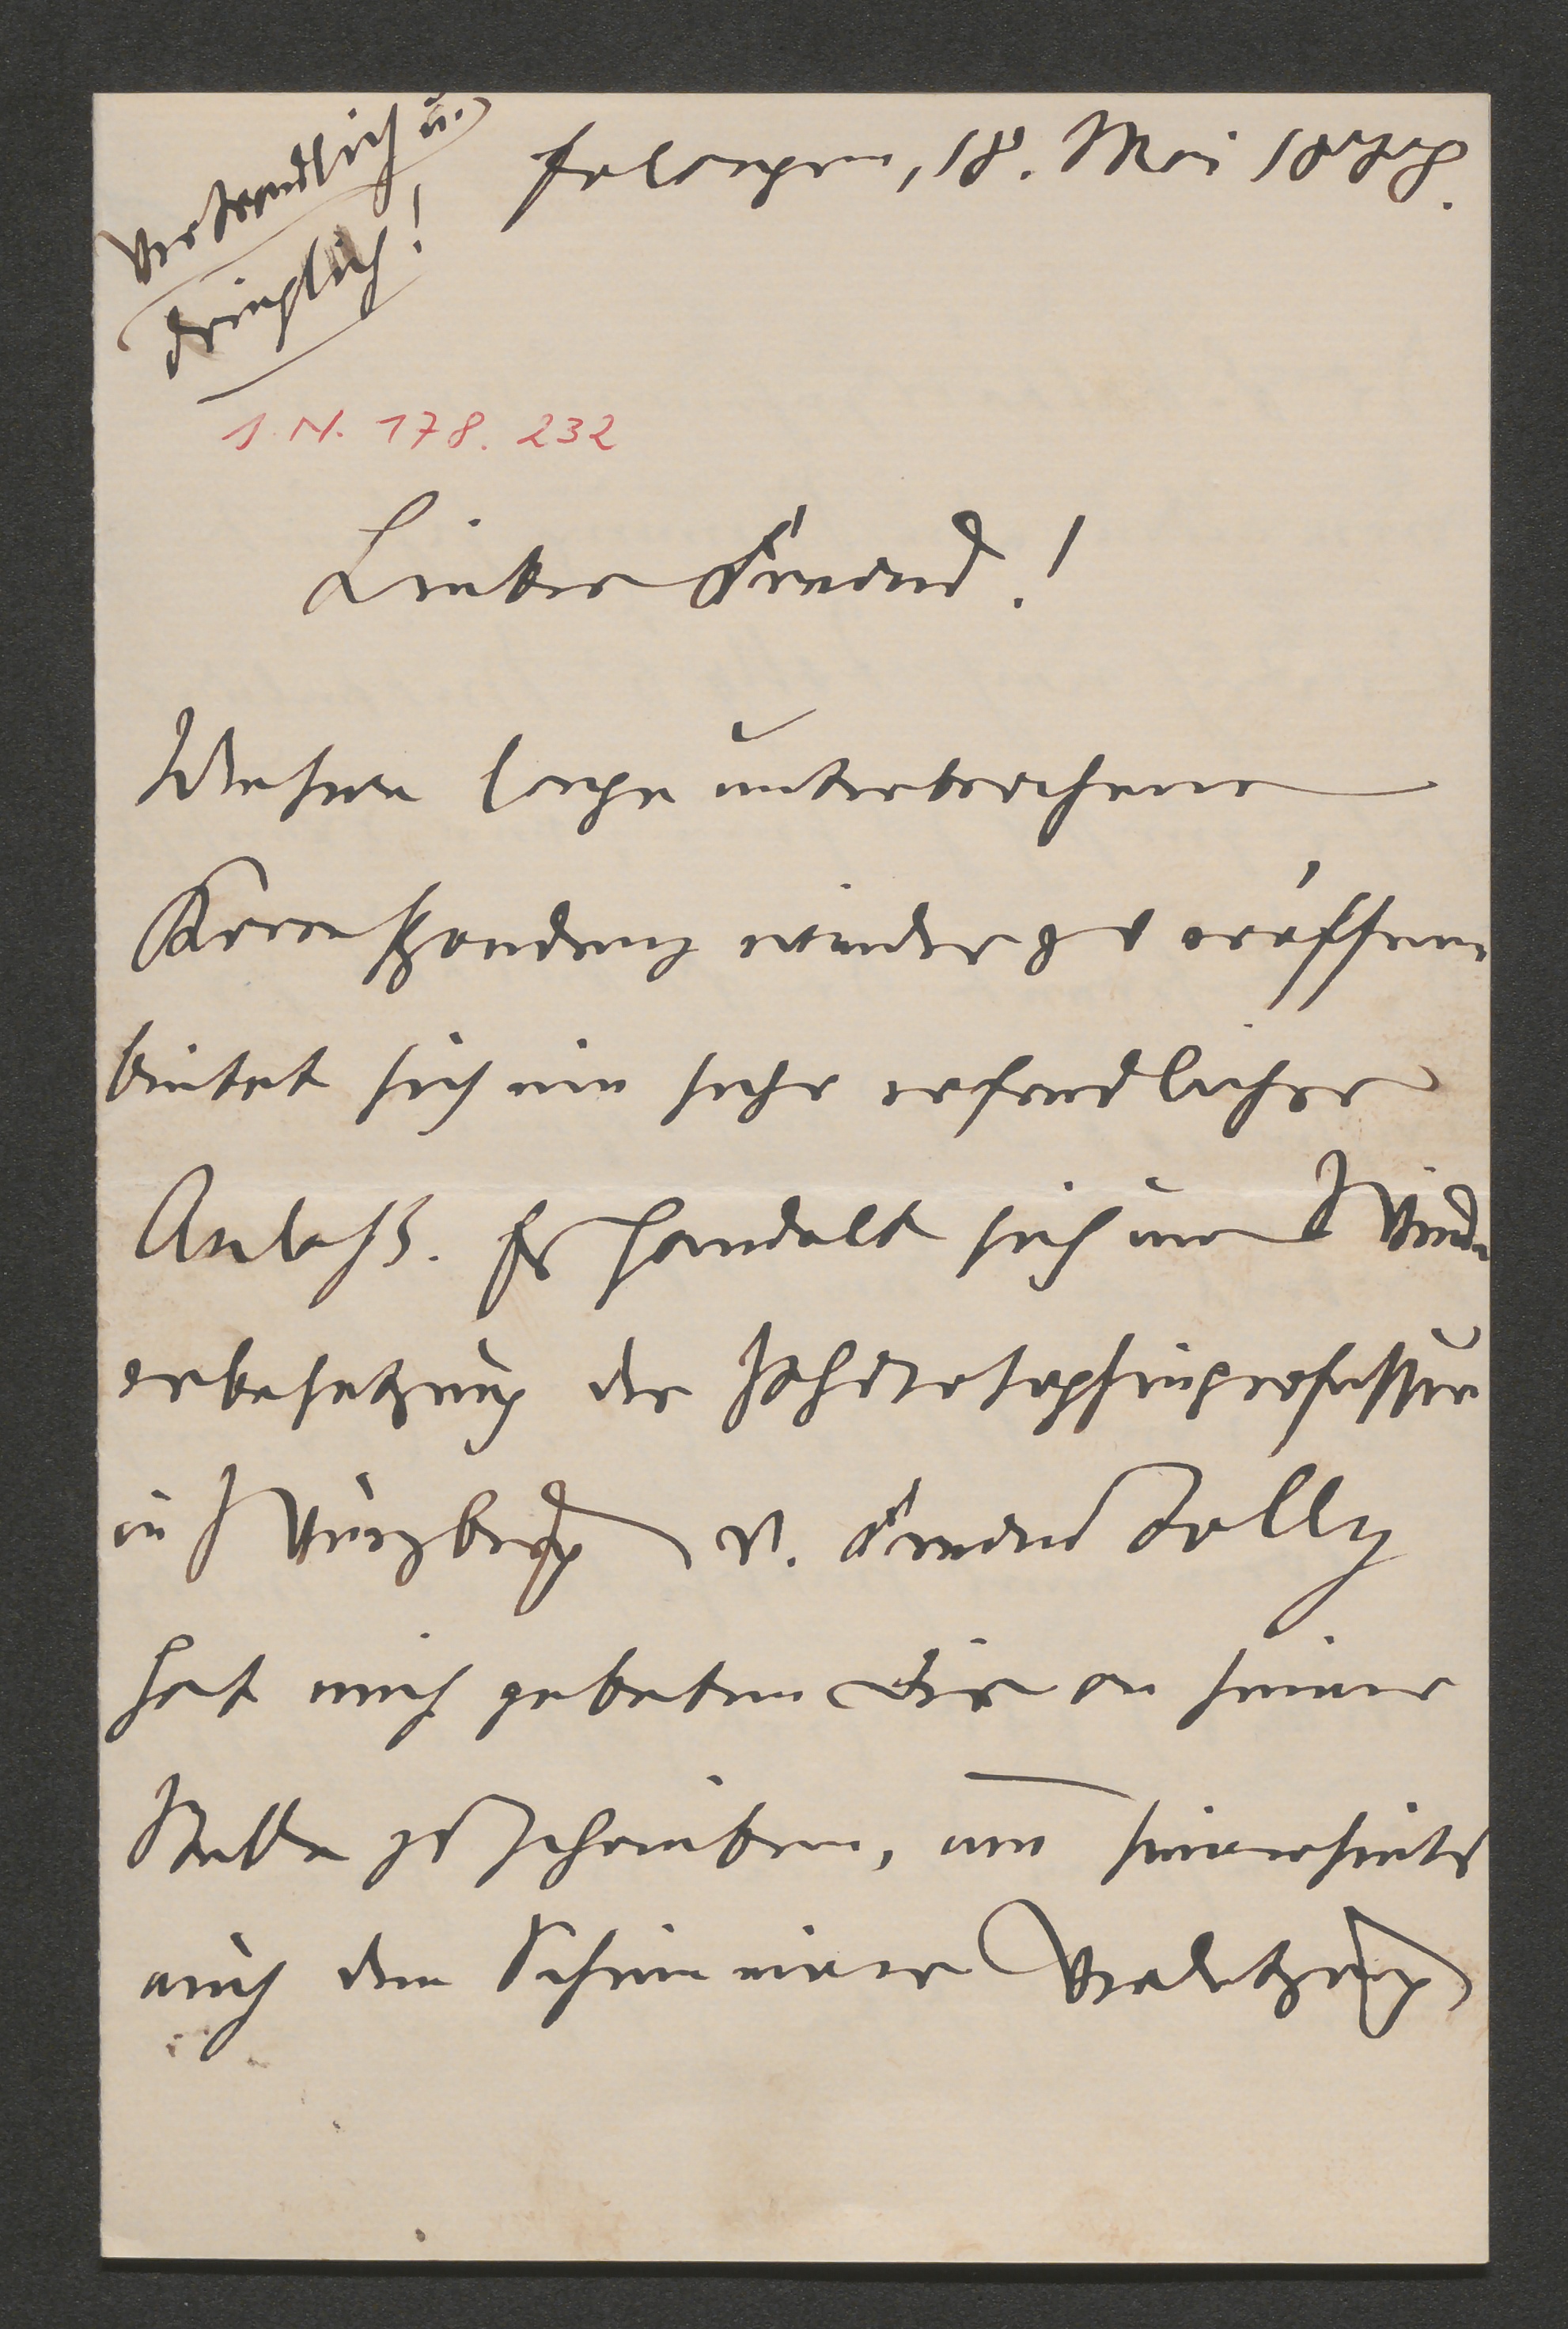 Vertraulich u.
dringlich!
Erlangen, 18. Mai 1888.
I.N. 178.232
Lieber Freund!
Unsere lange unterbrochene
Korrespondenz wieder zu eröffnen
bietet sich ein sehr erfreulicher
Anlaß. Es handelt sich um Wied-
erbesetzung der Philosophieprofessur
in Würzburg. Freund Jolly
hat mich gebeten Dir an seiner
Stelle zu schreiben, um seinerseits
auch den Schein einer Verletzung